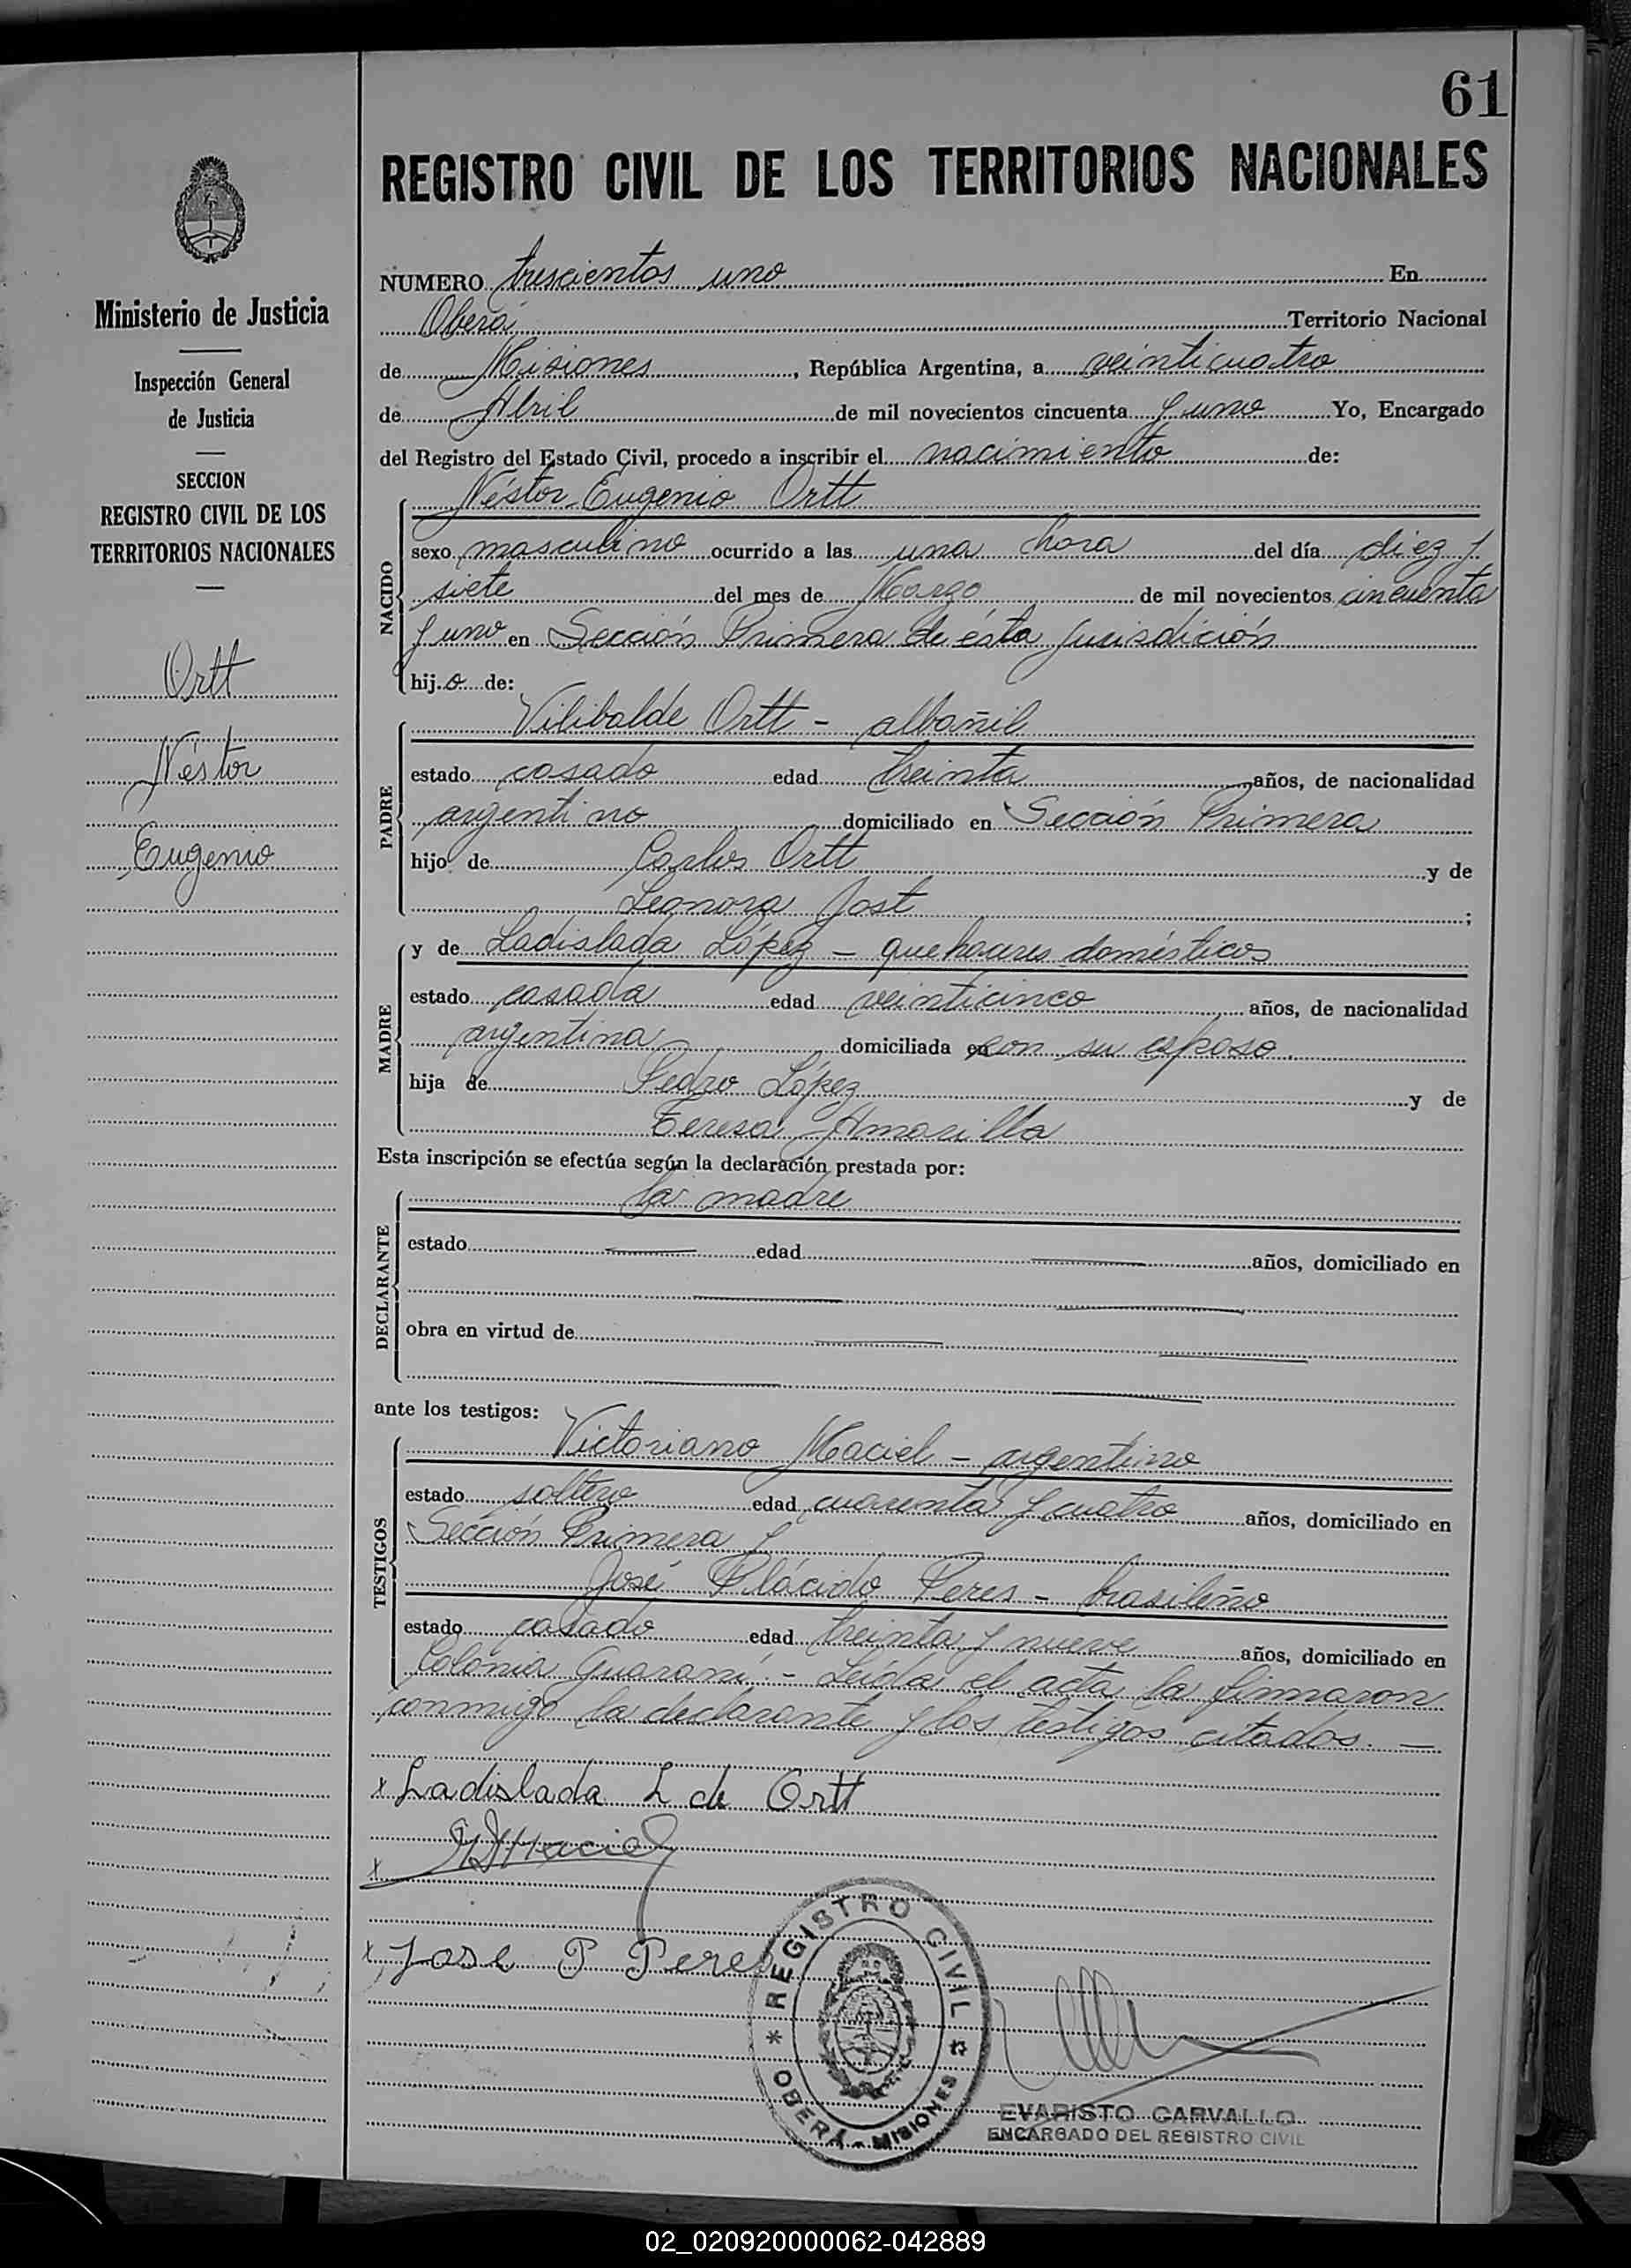 61
REGISTRO CIVIL DE LOS TERRITORIOS NACIONALES
Ministerio de Justicia
Inspección General
de Justicia
SECCION
REGISTRO CIVIL DE LOS
TERRITORIOS NACIONALES
Ortt
Néstor
Eugenio
NUMERO trescientos uno En
Oberá Territorio Nacional
de Misiones, República Argentina, a veinticuatro
de Abril de mil novecientos cincuenta y uno Yo, Encargado
del Registro del Estado Civil, procedo a inscribir el nacimiento de:
NACIDO
Néstor Eugenio Ortt
sexo masculino ocurrido a las una hora del día diez y
siete del mes de Marzo de mil novecientos cincuenta
y uno en Sección Primera de ésta jurisdición
hijo de:
PADRE
Vilibalde Ortt - albañil
estado casado edad treinta años, de nacionalidad
argentino domiciliado en Sección Primera
hijo de Carlos Ortt y de
Leonora Jost ;
MADRE
y de Ladislada López - quehaceres domésticos
estado casada edad veinticinco años, de nacionalidad
argentina domiciliada con su esposo.
hija de Pedro López y de
Teresa Amarilla
Esta inscripción se efectúa según la declaración prestada por:
DECLARANTE
la madre
estado edad años, domiciliado en
obra en virtud de
ante los testigos:
TESTIGOS
Victoriano Maciel - argentino
estado soltero edad cuarenta y cuatro años, domiciliado en
Sección Primera y
José Plácido Peres - brasileño
estado casado edad treinta y nueve años, domiciliado en
Colonia Guaraní. - Leída el acta la firmaron
conmigo la declarante y los testigos citados. —
x Ladislada L de Ortt
x Maciel
x Jose P Peres
REGISTRO CIVIL
* OBERÁ - MISIONES *
EVARISTO CARVALLO
ENCARGADO DEL REGISTRO CIVIL
02_020920000062-042889